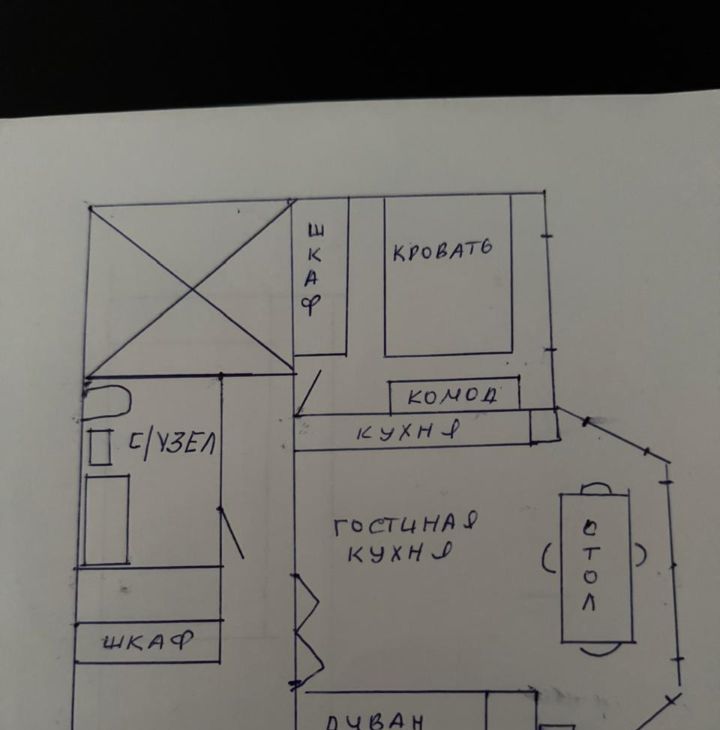 ШКАФ
КРОВАТЬ
КОМОД
КУХНЯ
С/УЗЕЛ
ГОСТИНАЯ
КУХНЯ
СТОЛ
ШКАФ
ДИВАН